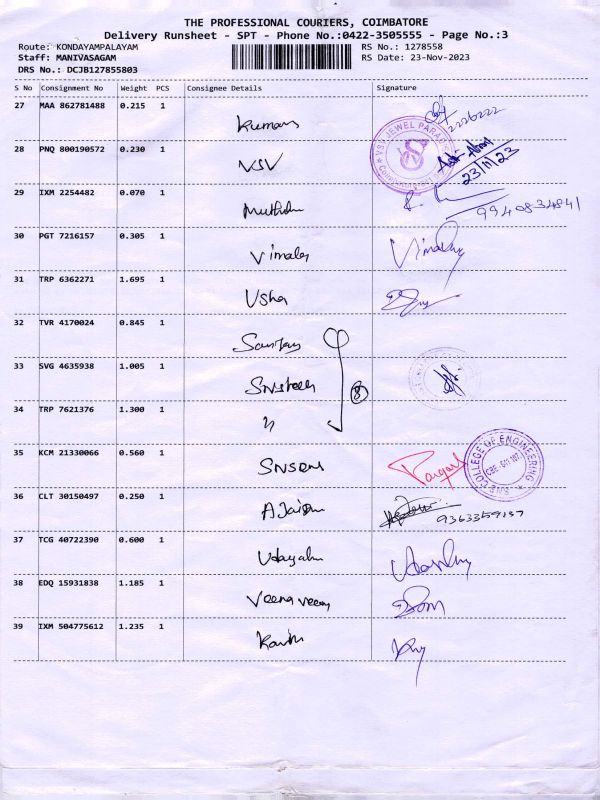 THE PROFESSIONAL COURIERS, COIMBATORE
Delivery Runsheet - SPT - Phone No.:0422-3505555 - Page No.:3
Route: KONDAYAMPALAYAM RS No.: 1278558
Staff: MANIVASAGAM RS Date: 23-Nov-2023
DRS No.: DCJB127855803
S No Consignment No Weight PCS Consignee Details Signature
27 MAA 862781488 0.215 1 Kumars 2226222
28 PNQ 800190572 0.230 1 VSV VSV JEWEL PARAD 23/11/23
29 IXM 2254482 0.070 1 9940834841
30 PGT 7216157 0.305 1 Vimales
31 TRP 6362271 1.695 1 Usha
32 TVR 4170024 0.845 1
33 SVG 4635938 1.005 1 8
34 TRP 7621376 1.300 1 "
35 KCM 21330066 0.560 1 COLLEGE OF ENGINEERING
36 CLT 30150497 0.250 1 9363359137
37 TCG 40722390 0.600 1
38 EDQ 15931838 1.185 1 Veena veeny
39 IXM 504775612 1.235 1